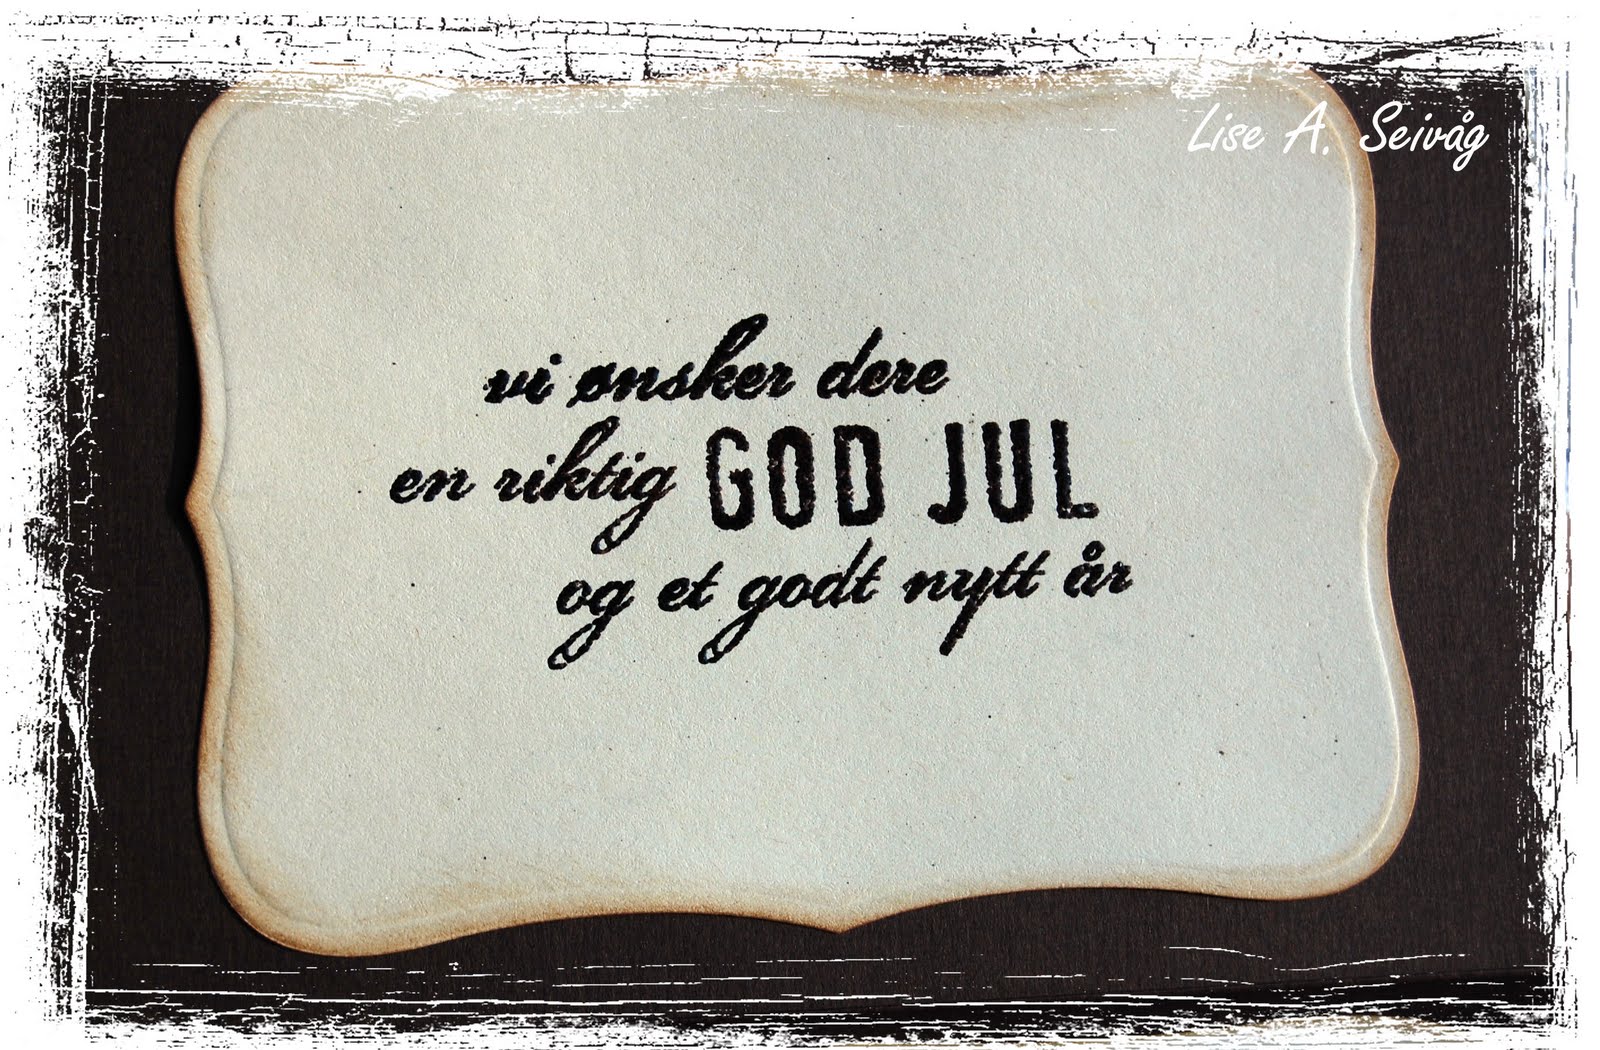 Lise A. Seivåg
vi ønsker dere
en riktig GOD JUL
og et godt nytt år